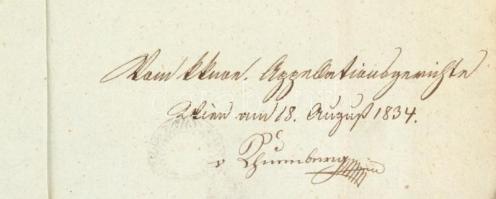 Vom kk nö. Appellationsgerichte
Wien am 18. August 1834.
v